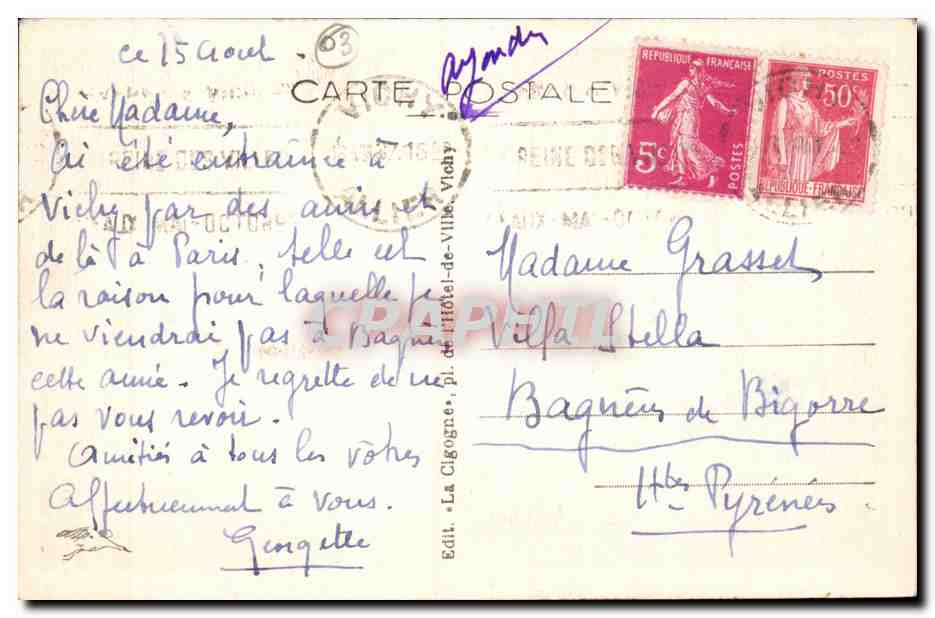 ce 15 Aout.
03
CARTE POSTALE
RÉPUBLIQUE FRANÇAISE
5c
POSTES
POSTES
50c
RÉPUBLIQUE-FRANÇAISE
VICHY
ALLIER
REINE DES
EAUX-MAI-OCTOBRE
Chère Madame,
Ai été entrainée à
Vichy par des amis et
de là à Paris, telle est
la raison pour laquelle je
ne viendrai pas à Bagnères
cette année. Je regrette de ne
pas vous revoir.
Amitiés à tous les vôtres
Affectueusement à vous.
Georgette
Edit. «La Cigogne», pl. de l'Hôtel-de-Ville, Vichy
Madame Grasset
Villa Stella
Bagnères de Bigorre
Htes Pyrénées
CPAPHIL